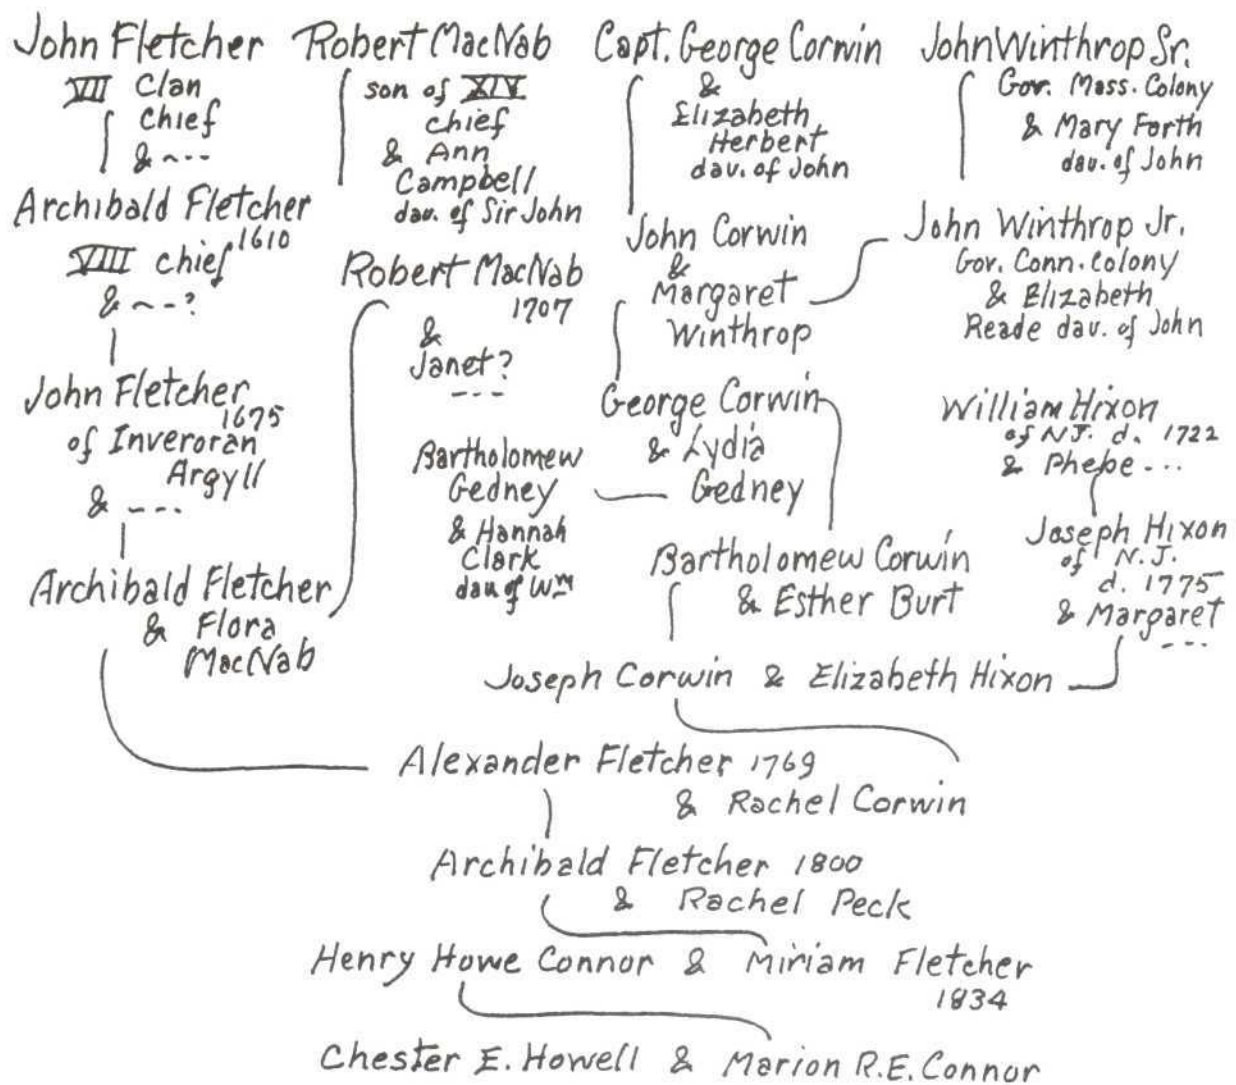 John Fletcher
VII Clan
Chief
& ~--
Archibald Fletcher
1610
VIII chief
& ~--?
John Fletcher
1675
of Inveroran
Argyll
& ---
Archibald Fletcher
& Flora
MacNab
Robert MacNab
son of XIV
chief
& Ann
Campbell
dau. of Sir John
Robert MacNab
1707
&
Janet?
---
Bartholomew
Gedney
& Hannah
Clark
dau of Wm
Capt. George Corwin
&
Elizabeth
Herbert
dav. of John
John Corwin
&
Margaret
Winthrop
George Corwin
& Lydia
Gedney
Bartholomew Corwin
& Esther Burt
John Winthrop Sr.
Gov. Mass. Colony
& Mary Forth
dau. of John
John Winthrop Jr.
Gov. Conn. Colony
& Elizabeth
Reade dav. of John
William Hixon
of NJ. d. 1722
& Phebe ---
Joseph Hixon
of N.J.
d. 1775
& Margaret
---
Joseph Corwin & Elizabeth Hixon
Alexander Fletcher 1769
& Rachel Corwin
Archibald Fletcher 1800
& Rachel Peck
Henry Howe Connor & Miriam Fletcher
1834
Chester E. Howell & Marion R.E. Connor